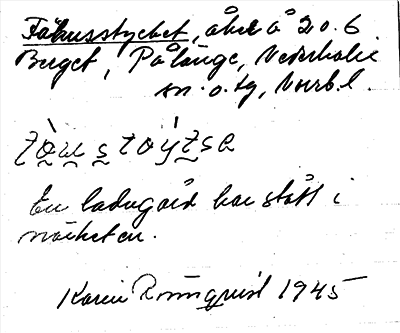 Fähusstycket, åker å 20.6
Berget, Pålänge, Nederkalix
sn. o. tg, Norrb. l.
En ladugård har stått i
närheten.
Karin Rönnqvist 1945